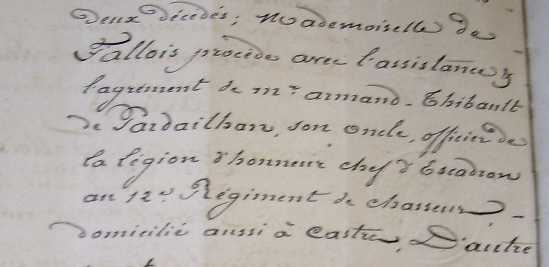 deux décédés; Mademoiselle de
Fallois procède avec l'assistance &
l'agrément de mr armand-Thibault
de Pardailhan, son oncle, officier de
la légion d'honneur chef d'Escadron
au 12e Régiment de chasseurs -
domicilié aussi à Castres, D'autre